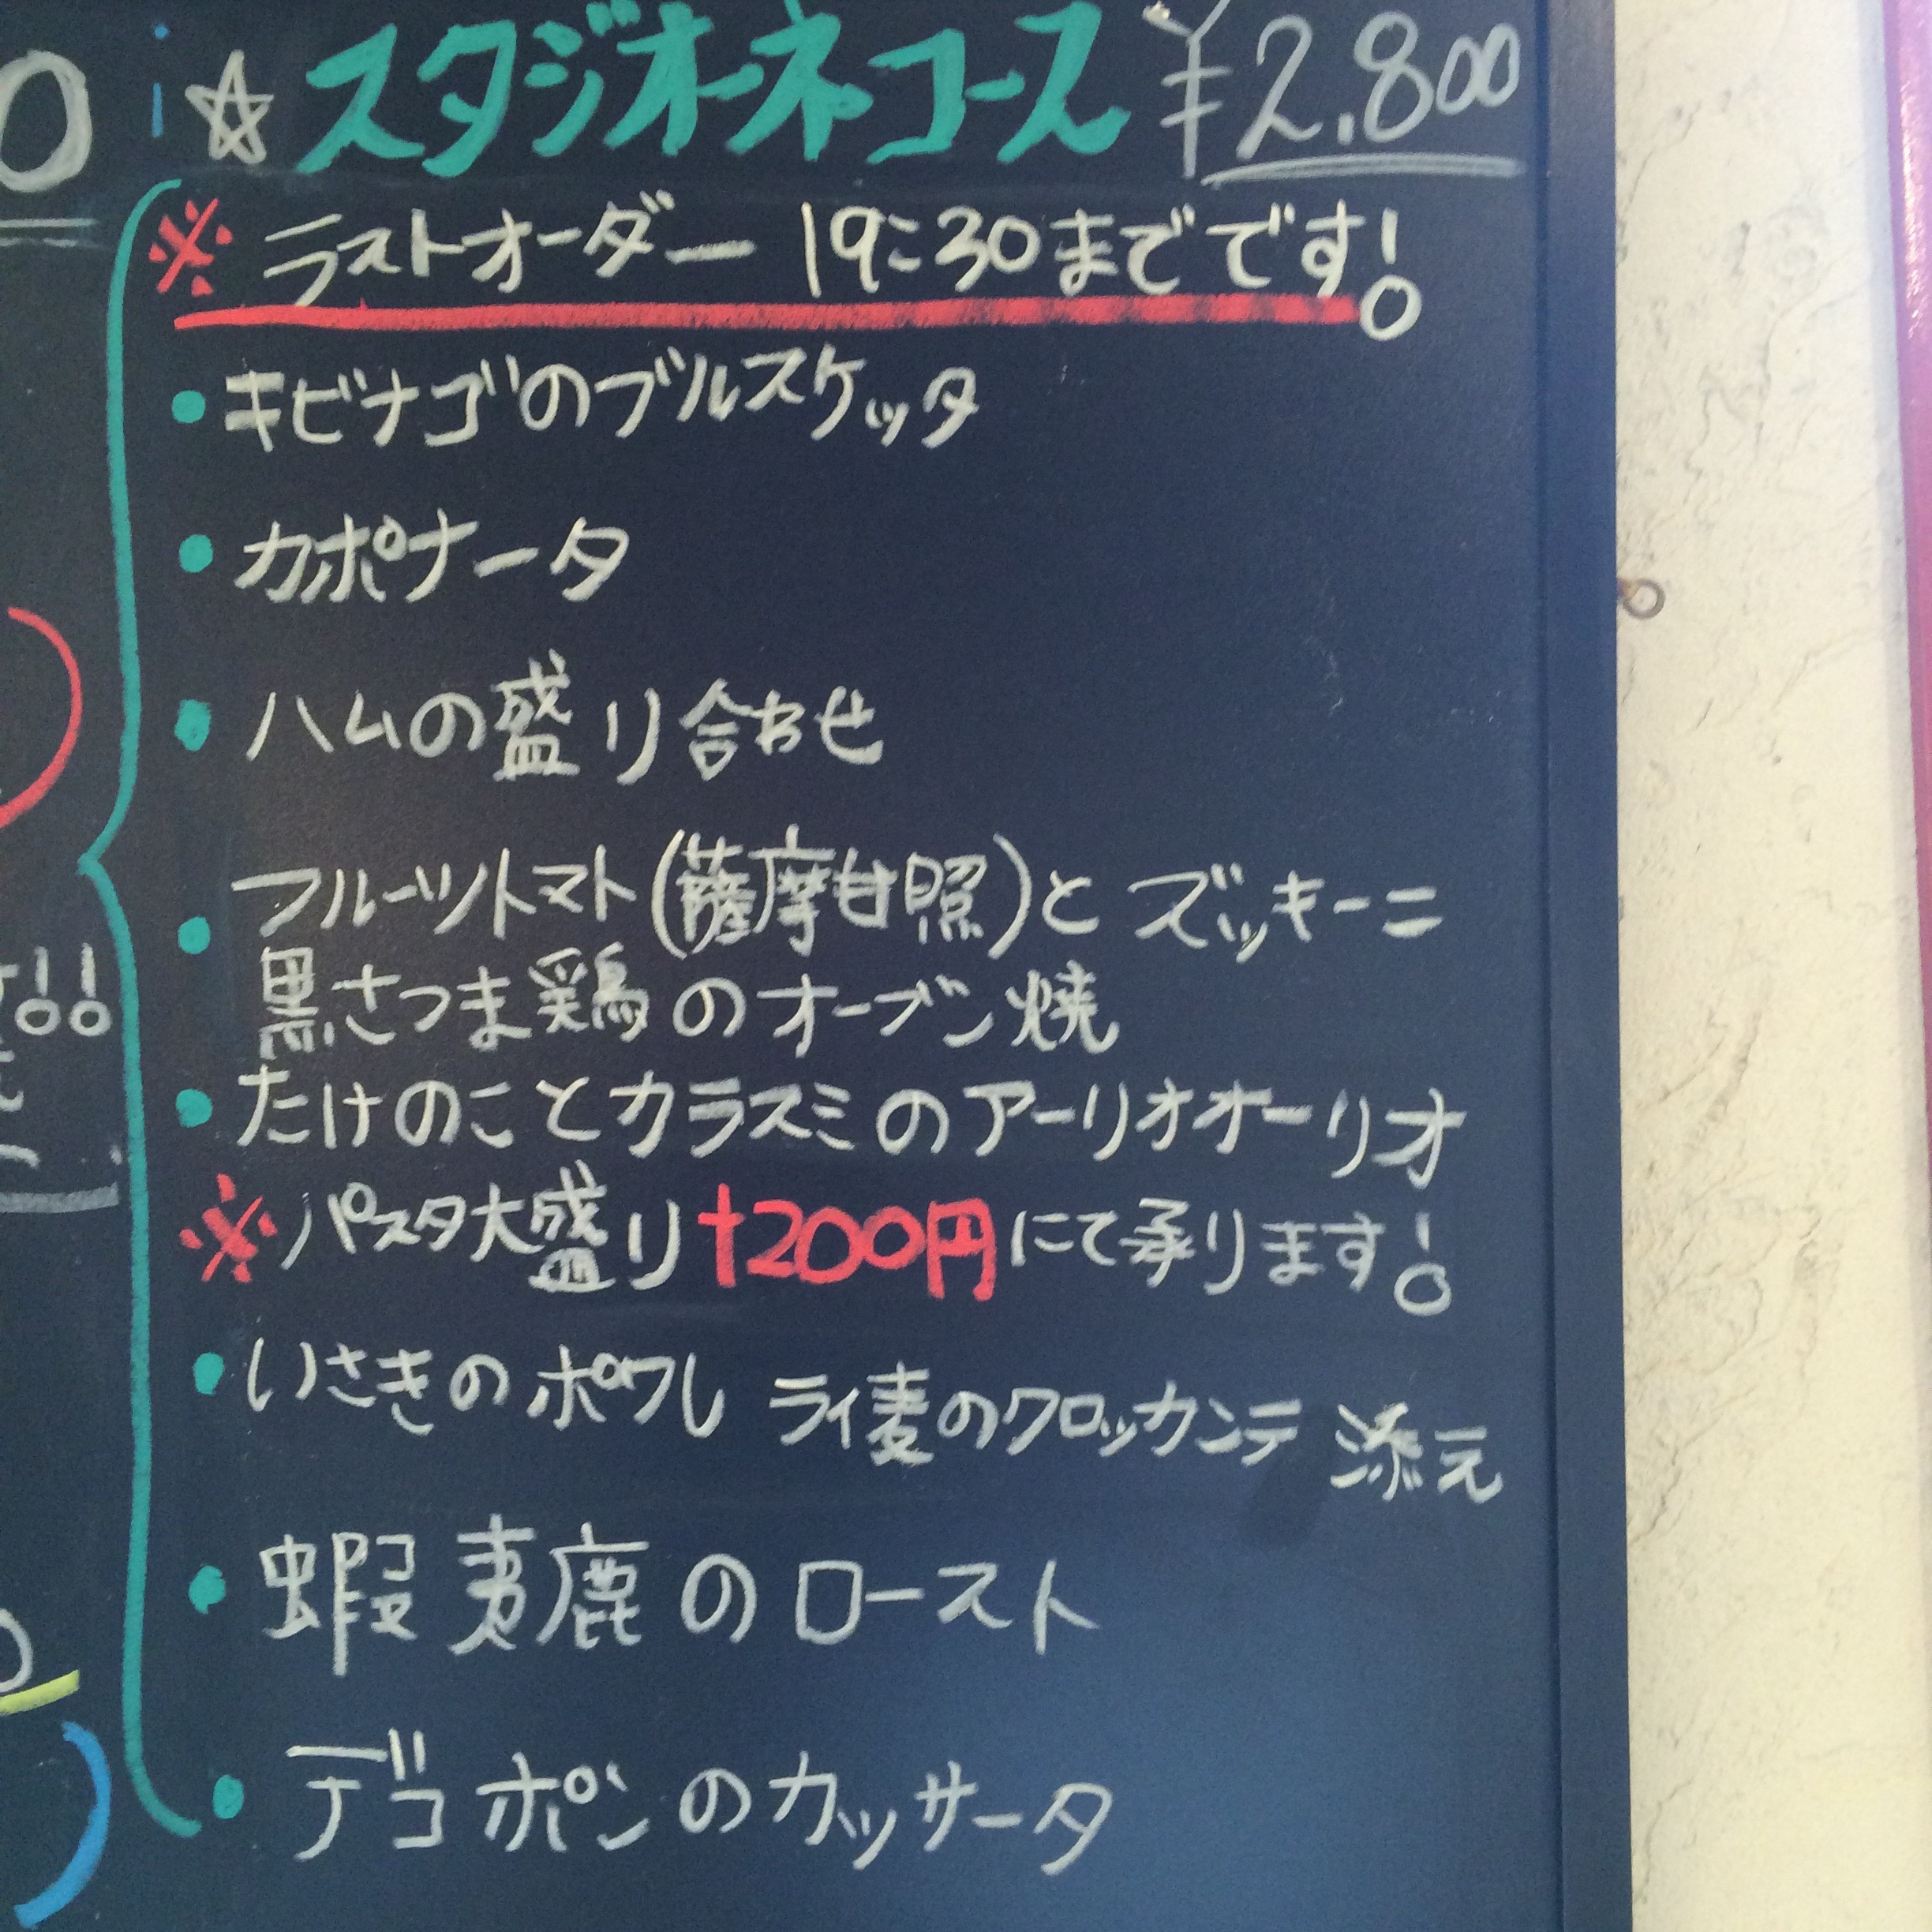 ☆スタジオーネコース ¥2.800
※ラストオーダー 19:30までです!
・キビナゴのブルスケッタ
・カポナータ
・ハムの盛り合わせ
・フルーツトマト(薩摩甘照)とズッキーニ
黒さつま鶏のオーブン焼
・たけのことカラスミのアーリオオーリオ
※パスタ大盛り+200円にて承ります!
・いさきのポワレ ライ麦のクロッカンテ 添え
・蝦夷鹿のロースト
・デコポンのカッサータ